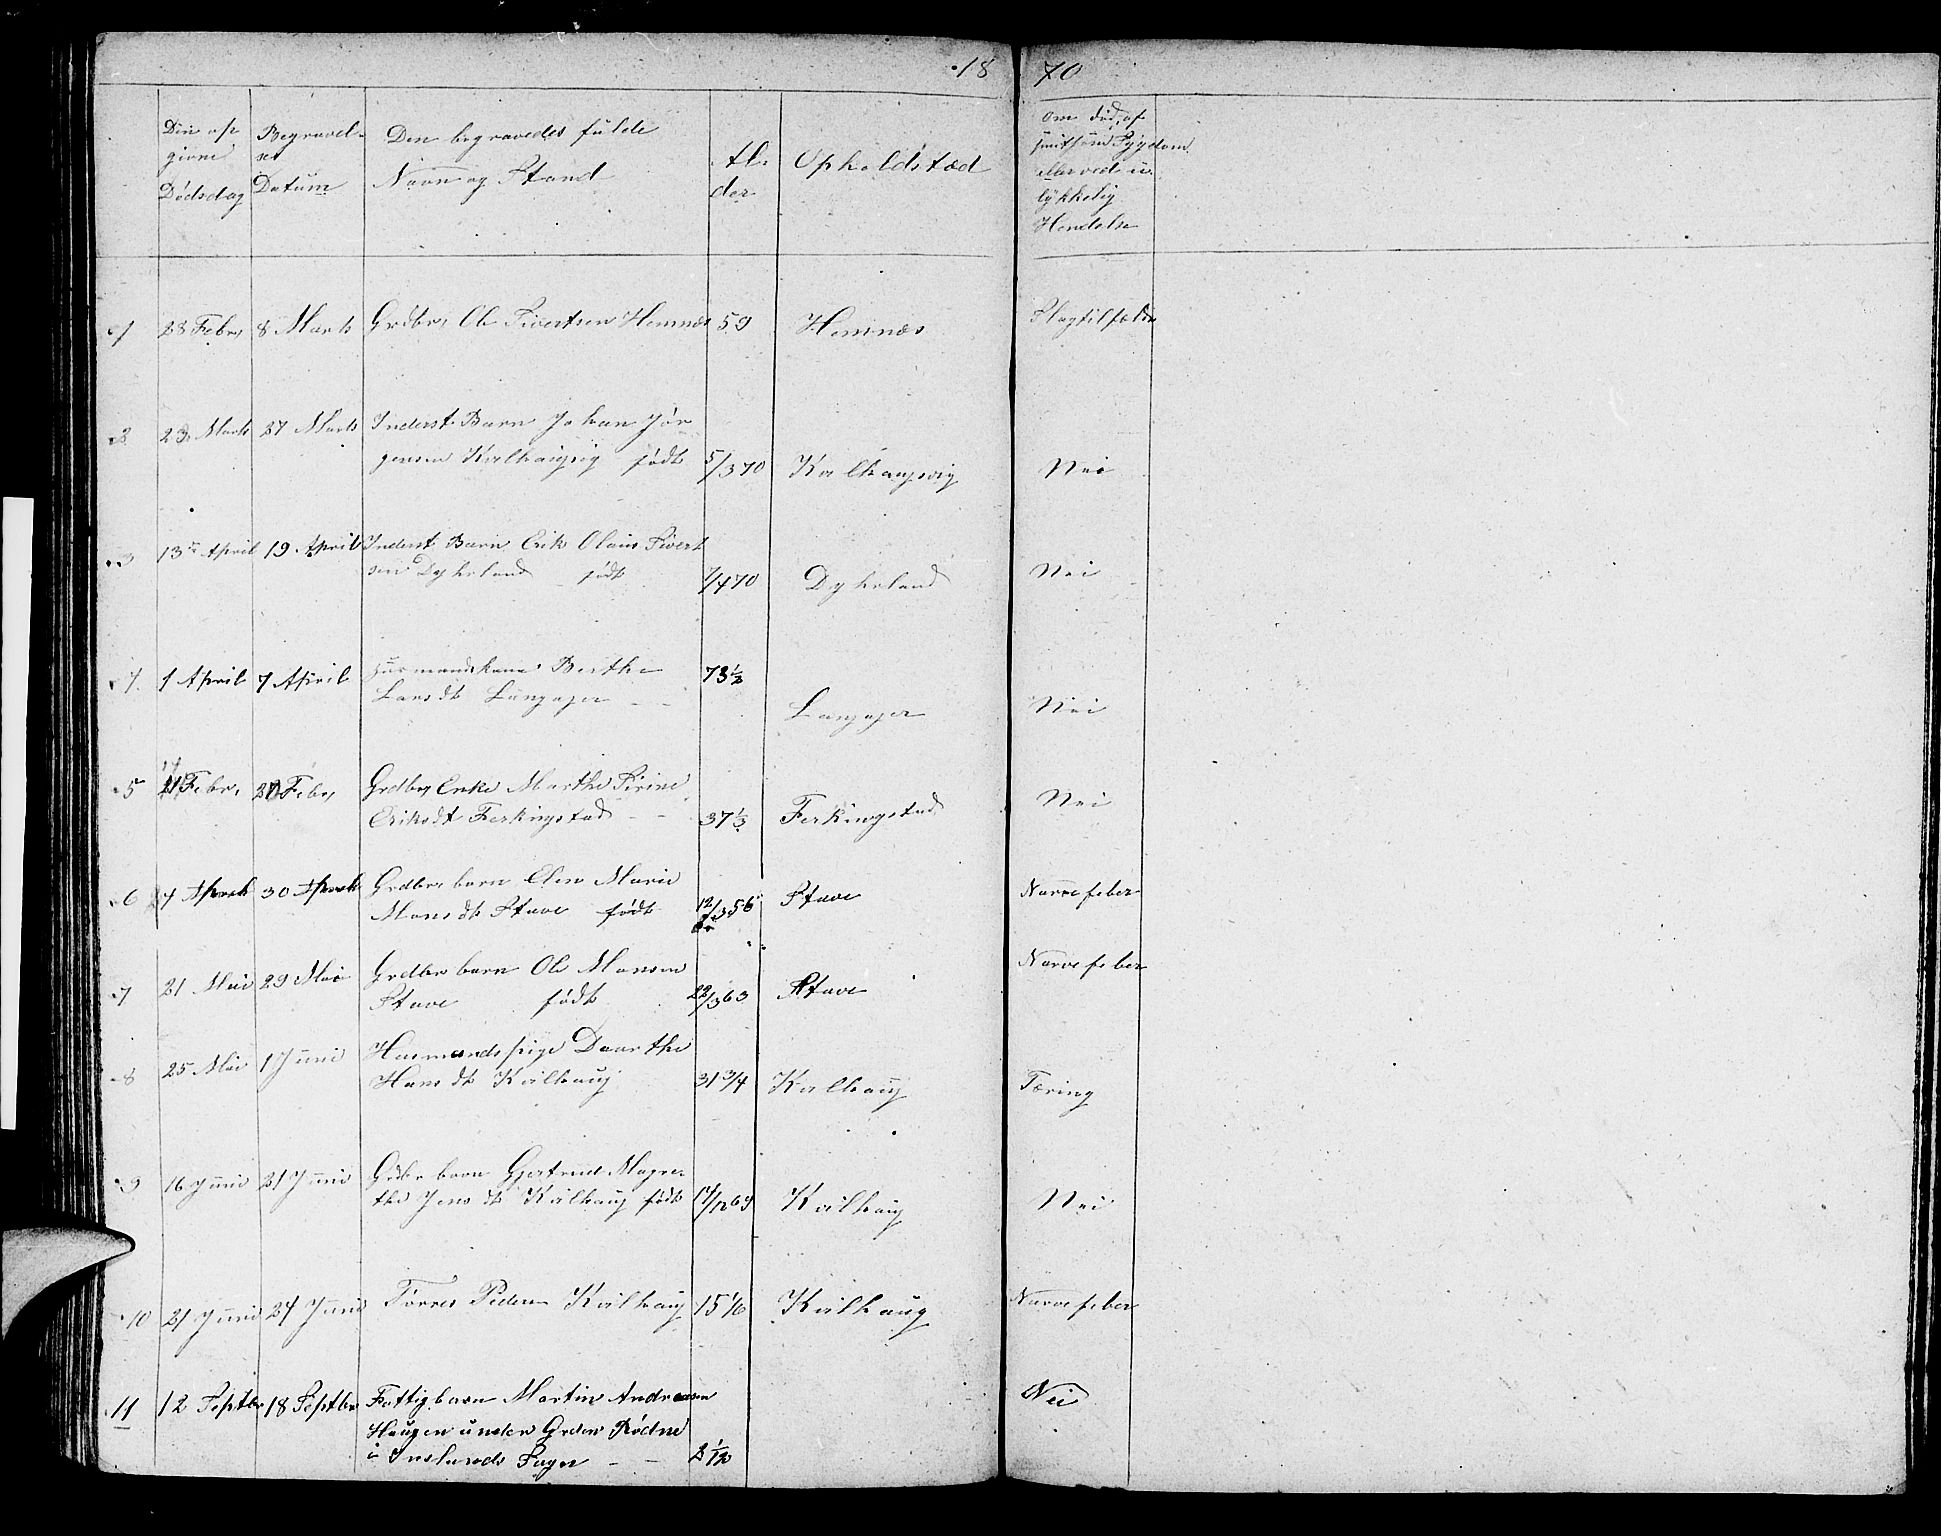 18 70
Den op
givne
Dødsdag
Begravel-
ses
Datum
Den begravedes fulde
Navn og Stand
Al-
der
Opholdstæd
Om død af
smitsom Sygdom
eller ved u-
lykkelig
Hendelse
1 28 Febr, 8 Marts Grdbr, Ole Sivertsen Hemnæs 59 Hemnæs Slagtilfælde
2 23 Marts 27 Marts Inderst. Barn Johan Jør
gensen Kvilhaugvig født 5/3 70 Kvilhaugsvig Nei
3 13 April 19 April Inderst. Barn Erik Olaus Sivert
sen Dyheland født 7/4 70 Dyheland Nei
4 1 April 7 April Huusmandskone Berthe
Larsdt Langager - - 73 1/2 Langager Nei
5 Febr, Febr, Grdbr, Enke Marthe Sirine
Eriksdt Ferkingstad - - 37 1/3 Ferkingstad Nei
6 30 Grdbr, barn Elen Marie
Monsdt Stave født 12/3 56 Stave Narvefeber
7 21 Mai 29 Mai Grdbr barn Ole Monsen
Stave født 22/3 63 Stave Narvefeber
8 25 Mai 1 Juni Husmandspige Daarthe
Hansdt Kvilhaug 31 3/4 Kvilhaug Tæring
9 16 Juni 21 Juni Gdbr barn Gjertrud Magre-
the Jensdt Kvilhaug født 17/12 69 Kvilhaug Nei
10 21 Juni 24 Juni Tørres Pedersen Kvilhaug 15 1/6 Kvilhaug Narvefeber
11 12 Septbr 18 Septbr Fattigbarn Martin Andreasen
Haugen under Grden Rødne
i Sogn - - 2 1/12 Nei